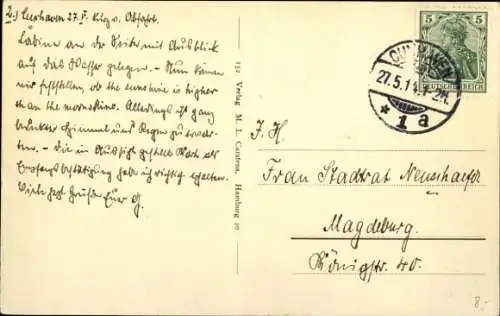 2.) Cuxhaven 27.V. Kurz v. Abfahrt.
Kabine an der Seite mit Ausblick
auf das Wasser gelegen. – Nun können
wir feststellen, ob the sunshine is higher
as the moonshine. Allerdings ist ganz
bedeckter Himmel und Regen zu erwar-
ten. – Die in Aussicht gestellte Karte als
Empfangsbestätigung habe ich richtig erhalten.
Viele herzl. Grüße Euer
132 Verlag M. L. Carstens, Hamburg 30
5 5
DEUTSCHES REICH
CUXHAVEN
27.5.14.1-2N.
* 1 a
I. H.
Frau Stadtrat Neuschaefer
Magdeburg.
Königstr. 40.
8,-